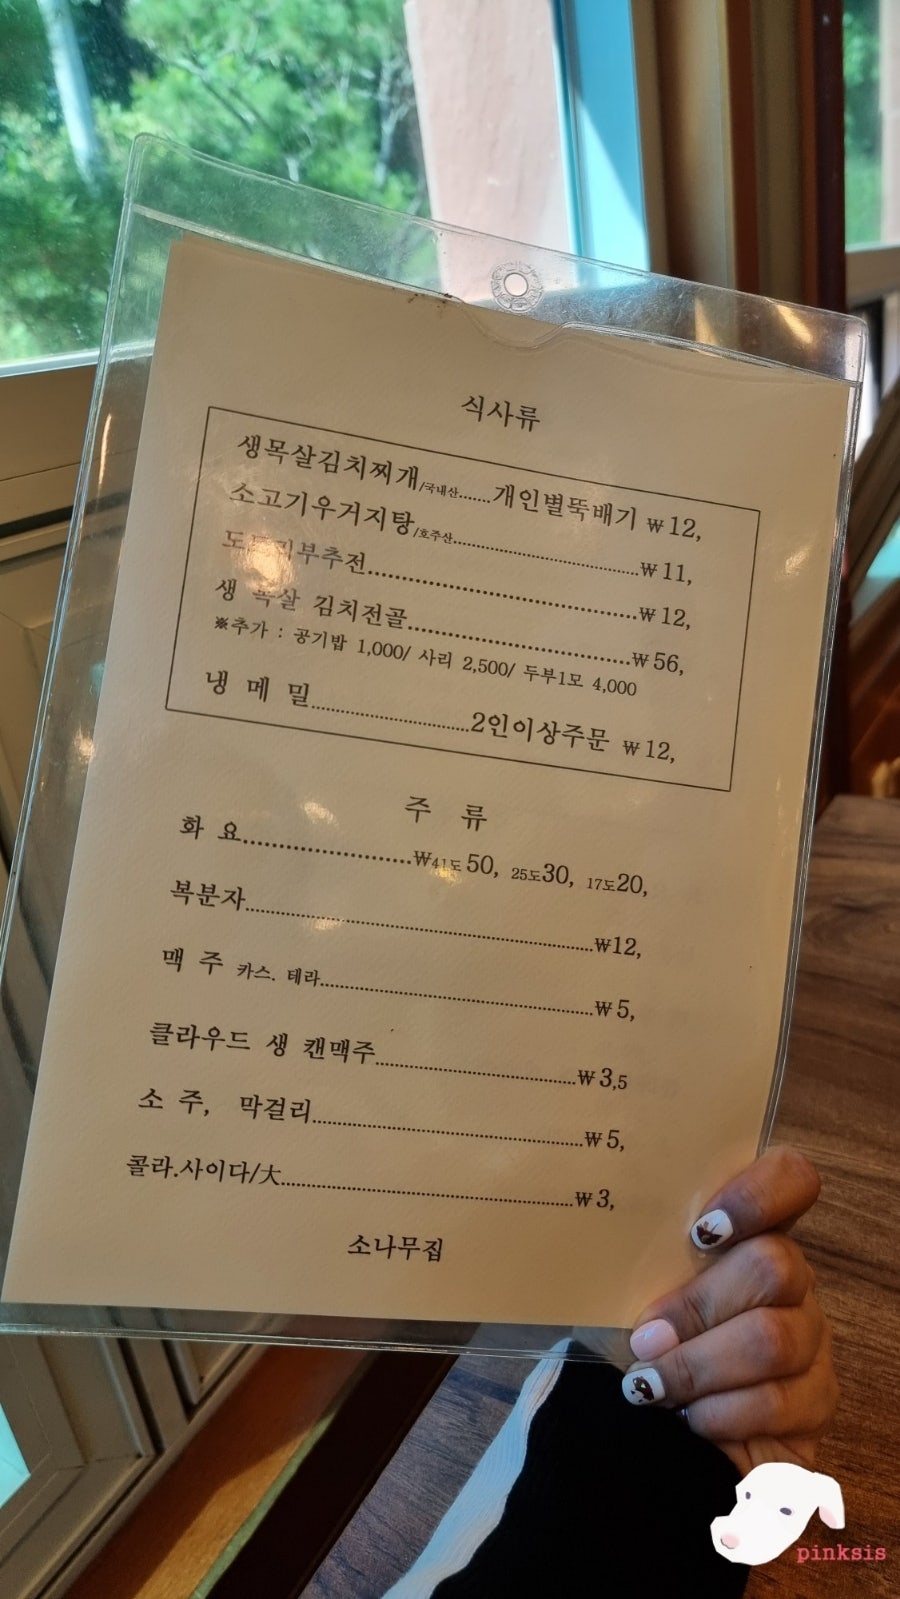 식사류
생목살김치찌개/국내산.......개인별뚝배기 ₩12,
소고기우거지탕/호주산.......................................₩11,
부추전.......................................₩12,
생 목살 김치전골.......................................₩56,
※추가 : 공기밥 1,000/ 사리 2,500/ 두부1모 4,000
냉 메 밀...........................2인이상주문 ₩12,
주 류
화 요...........................₩41도50, 25도30, 17도20,
복분자.......................................₩12,
맥 주 카스. 테라.......................................₩5,
클라우드 생 캔맥주.......................................₩3,5
소 주, 막걸리.......................................₩5,
콜라.사이다/大.......................................₩3,
소나무집
pinksis